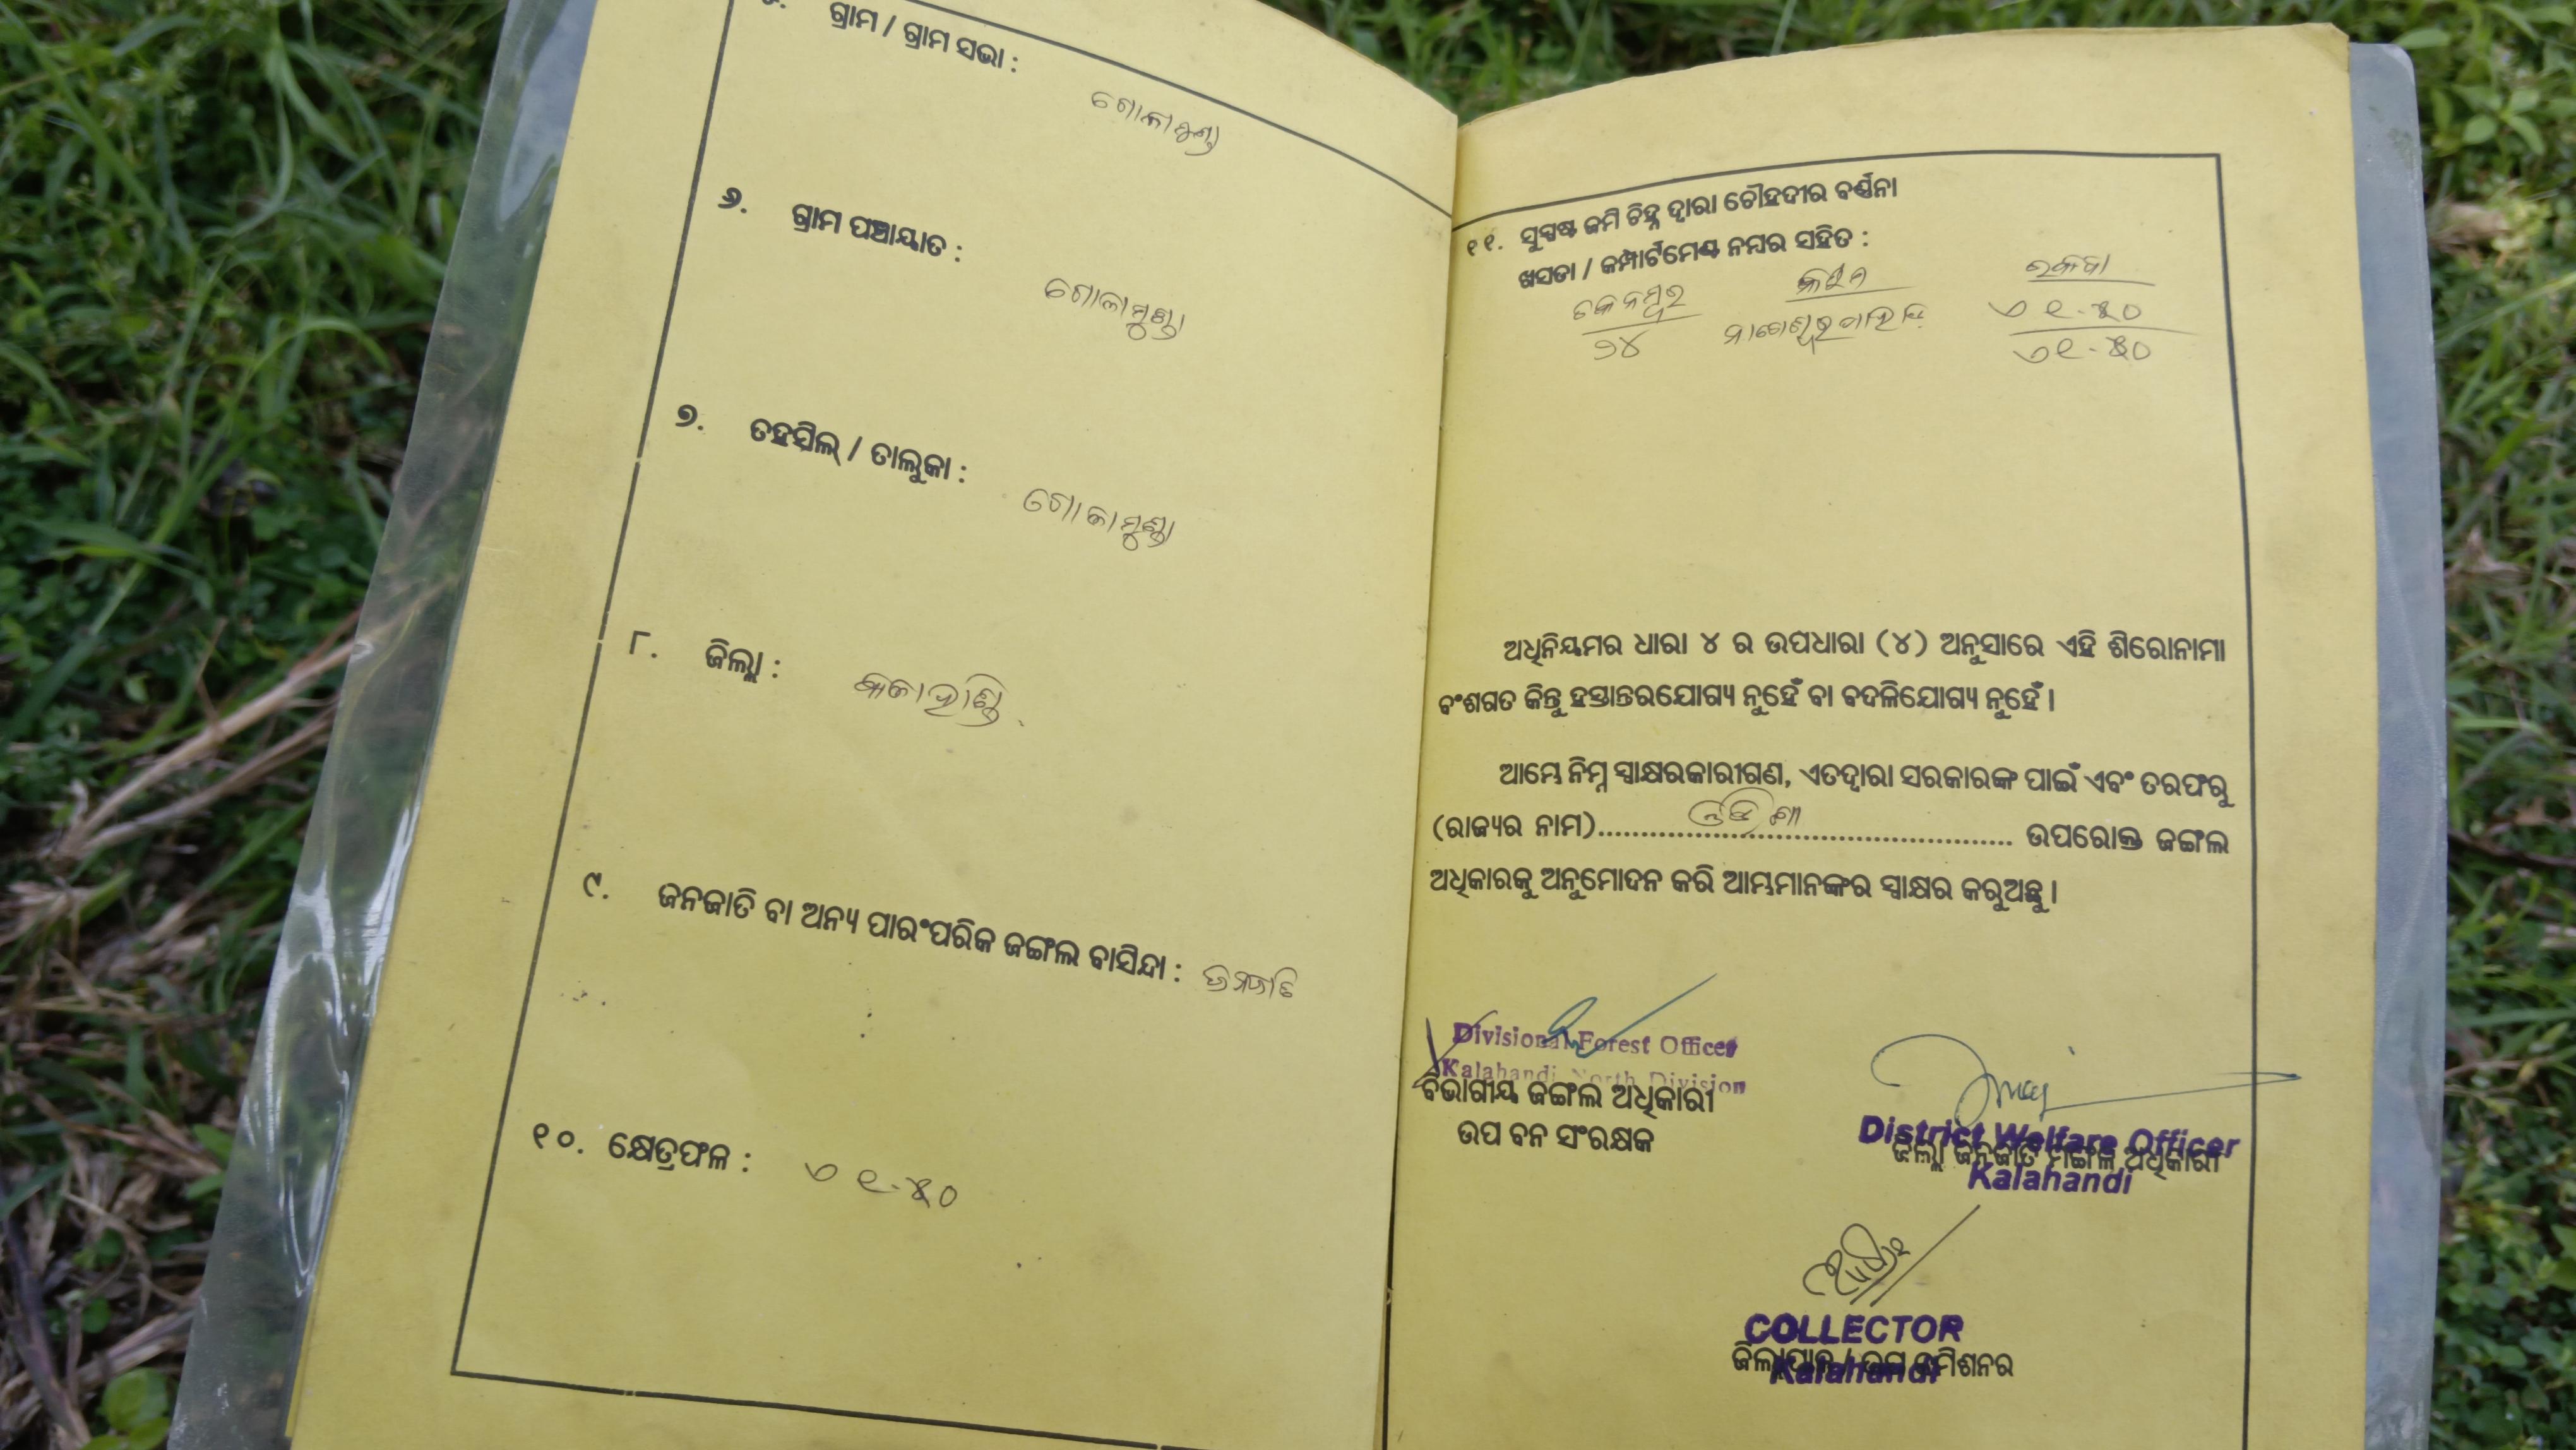 ଗ୍ରାମ / ଗ୍ରାମ ସଭା :
ଗୋଲାମୁଣ୍ଡା
୬. ଗ୍ରାମ ପଞ୍ଚାୟାତ :
ଗୋଲାମୁଣ୍ଡା
୭. ତହସିଲ୍ / ତାଲୁକା :
ଗୋଲାମୁଣ୍ଡା
୮. ଜିଲ୍ଲା :
କଳାହାଣ୍ଡି
୯. ଜନଜାତି ବା ଅନ୍ୟ ପାରଂପରିକ ଜଙ୍ଗଲ ବାସିନ୍ଦା : ଜନଜାତି
୧୦. କ୍ଷେତ୍ରଫଳ :
୧୧. ସୁସ୍ପଷ୍ଟ ଜମି ଚିହ୍ନ ଦ୍ୱାରା ଚୌହଦୀର ବର୍ଣ୍ଣନା
ଖସଡା / କମ୍ପାର୍ଟମେଣ୍ଟ ନମ୍ବର ସହିତ :
କିସମ ରକବା
ଅଧିନିୟମର ଧାରା ୪ ର ଉପଧାରା (୪) ଅନୁସାରେ ଏହି ଶିରୋନାମା
ବଂଶଗତ କିନ୍ତୁ ହସ୍ତାନ୍ତରଯୋଗ୍ୟ ନୁହେଁ ବା ବଦଳିଯୋଗ୍ୟ ନୁହେଁ ।
ଆମ୍ଭେ ନିମ୍ନ ସ୍ୱାକ୍ଷରକାରୀଗଣ, ଏତଦ୍ୱାରା ସରକାରଙ୍କ ପାଇଁ ଏବଂ ତରଫରୁ
(ରାଜ୍ୟର ନାମ)........ଓଡ଼ିଶା........ ଉପରୋକ୍ତ ଜଙ୍ଗଲ
ଅଧିକାରକୁ ଅନୁମୋଦନ କରି ଆମ୍ଭମାନଙ୍କର ସ୍ୱାକ୍ଷର କରୁଅଛୁ ।
Divisional Forest Officer
Kalahandi North Division
ବିଭାଗୀୟ ଜଙ୍ଗଲ ଅଧିକାରୀ
ଉପ ବନ ସଂରକ୍ଷକ
District Welfare Officer
ଜିଲ୍ଲା ଜନଜାତି ମଙ୍ଗଳ ଅଧିକାରୀ
Kalahandi
COLLECTOR
ଜିଲ୍ଲାପାଳ / ଉପ କମିଶନର
Kalahandi